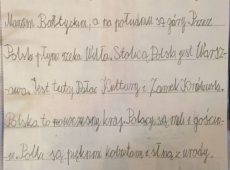 Morzem Bałtyckim, a na południu są góry. Przez
Polskę płynie rzeka Wisła. Stolicą Polski jest Warsz-
awa. Jest tutaj Pałac Kultury i Zamek Królewski.
Polska to nowoczesny kraj. Polacy są mili i gościn-
ni. Polki są pięknymi kobietami i słyną z urody.